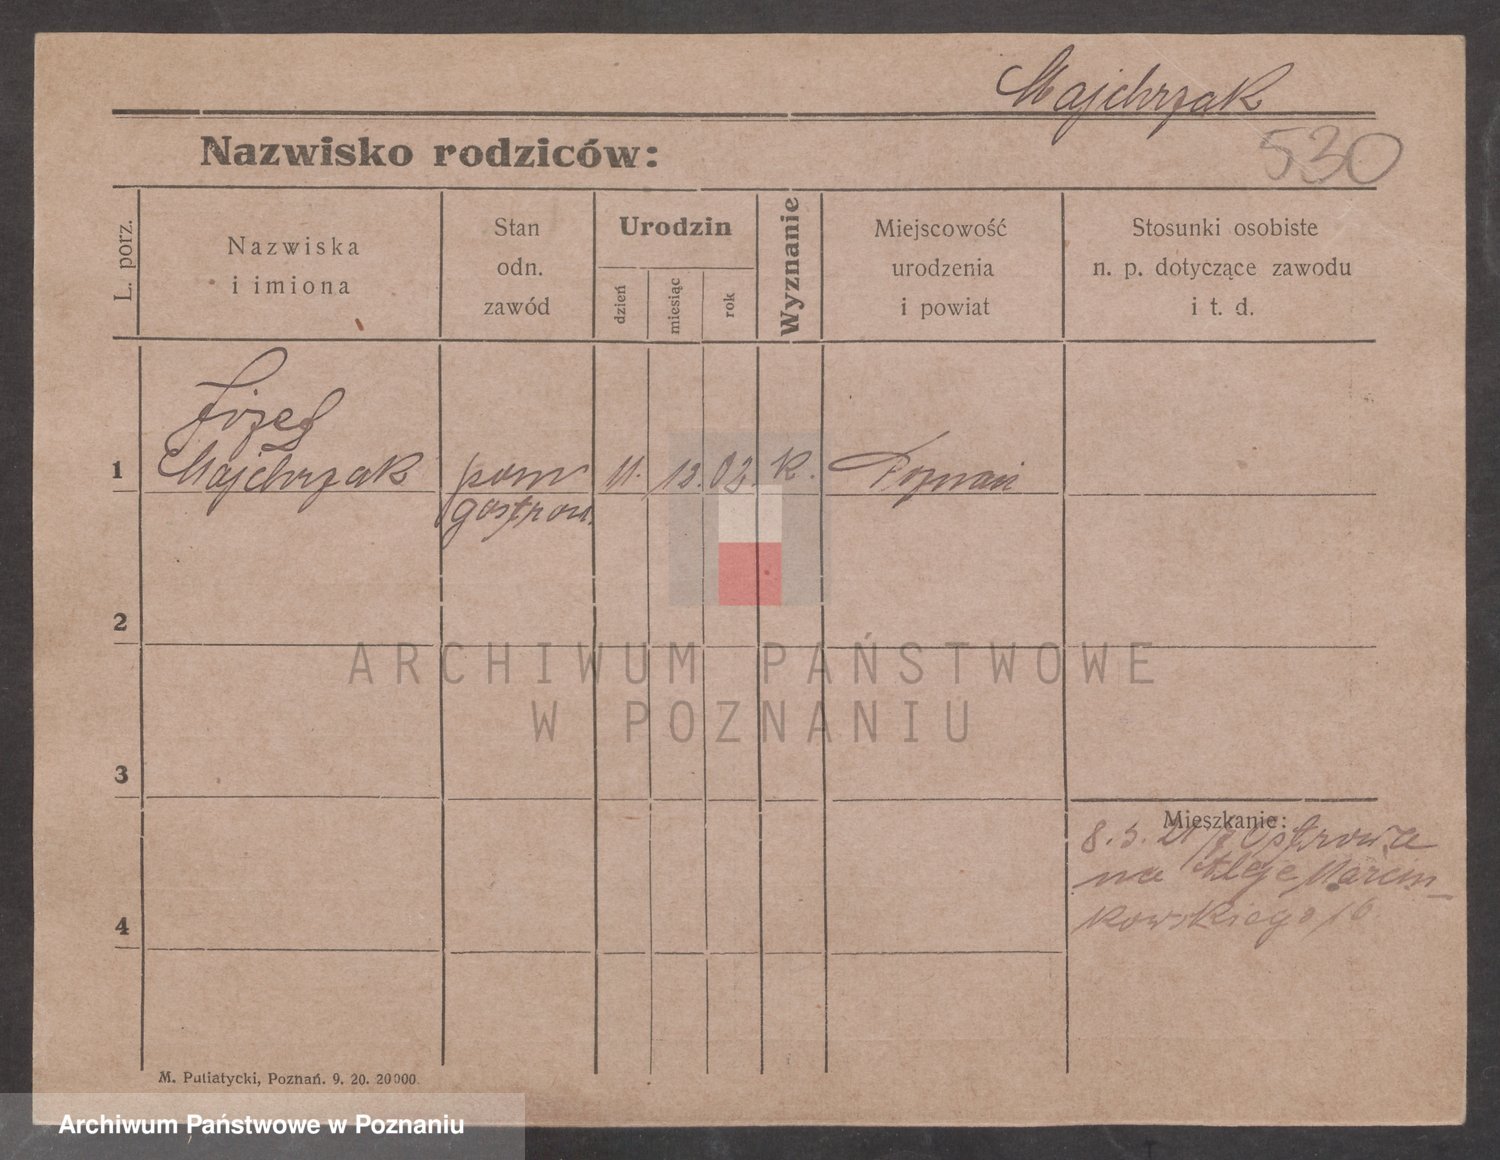 Majchrzak
530
Nazwisko rodziców:
L. porz.
Nazwiska
i imiona
Stan
odn.
zawód
Urodzin
dzień
miesiąc
rok
Wyznanie
Miejscowość
urodzenia
i powiat
Stosunki osobiste
n. p. dotyczące zawodu
i t. d.
1
Józef
Majchrzak
pom
gostron.
11. 12. 02. k. Poznań
2
3
4
Mieszkanie:
8. 3. 21 z Ostrowa
na Aleje Marcin-
kowskiego 16
M. Putiatycki, Poznań. 9. 20. 20000.
ARCHIWUM PAŃSTWOWE
W POZNANIU
Archiwum Państwowe w Poznaniu